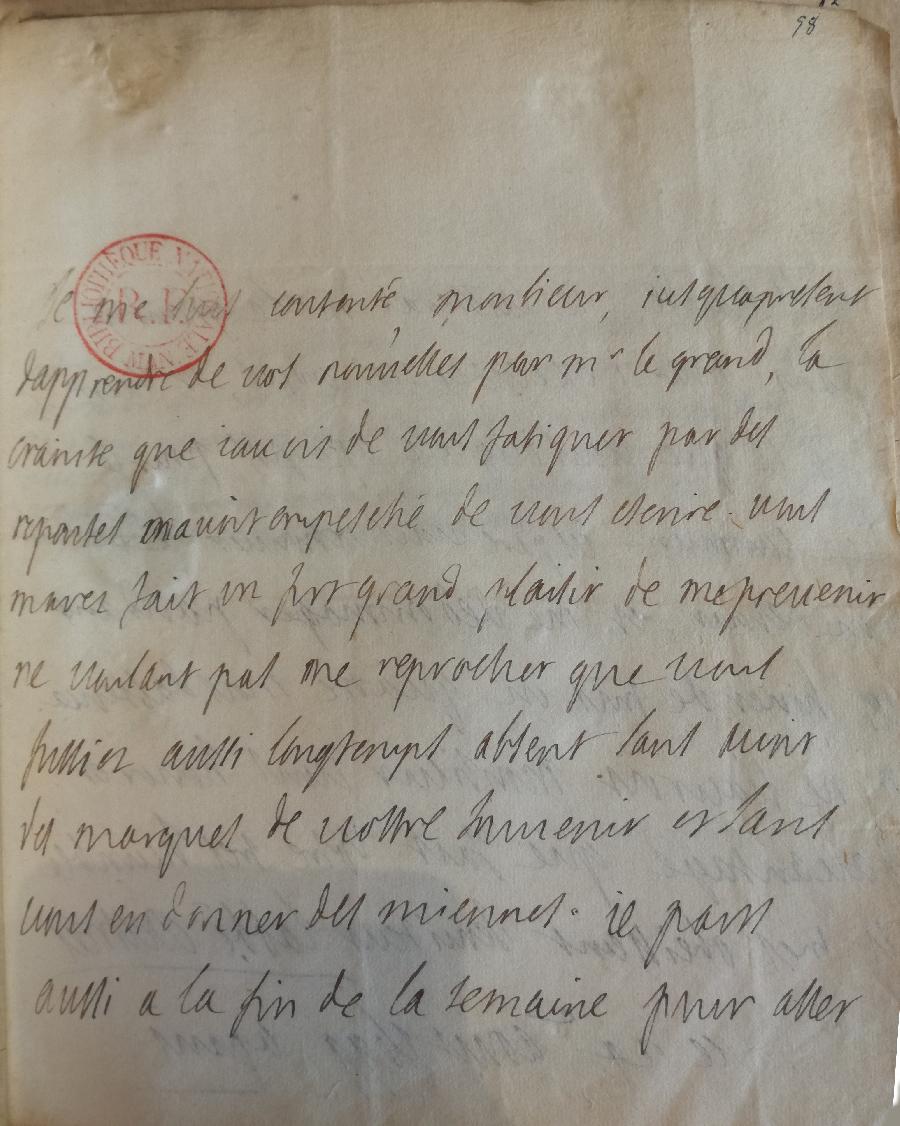 98
BIBLIOTHÈQUE NATIONALE MSS
R.F.
Je me suis contanté monsieur, iusquapresent
dapprendre de vos nouuelles par mr le grand, la
crainte que iauois de vous fatiguer par des
reponses mauoit empesché de vous escrire. vous
maues fait un fort grand plaisir de me preuenir
ne voulant pas me reprocher que vous
fussies aussi longtemps absent sans auoir
des marques de vostre souuenir et sans
vous en donner des miennes. ie pars
aussi a la fin de la semaine pour aller